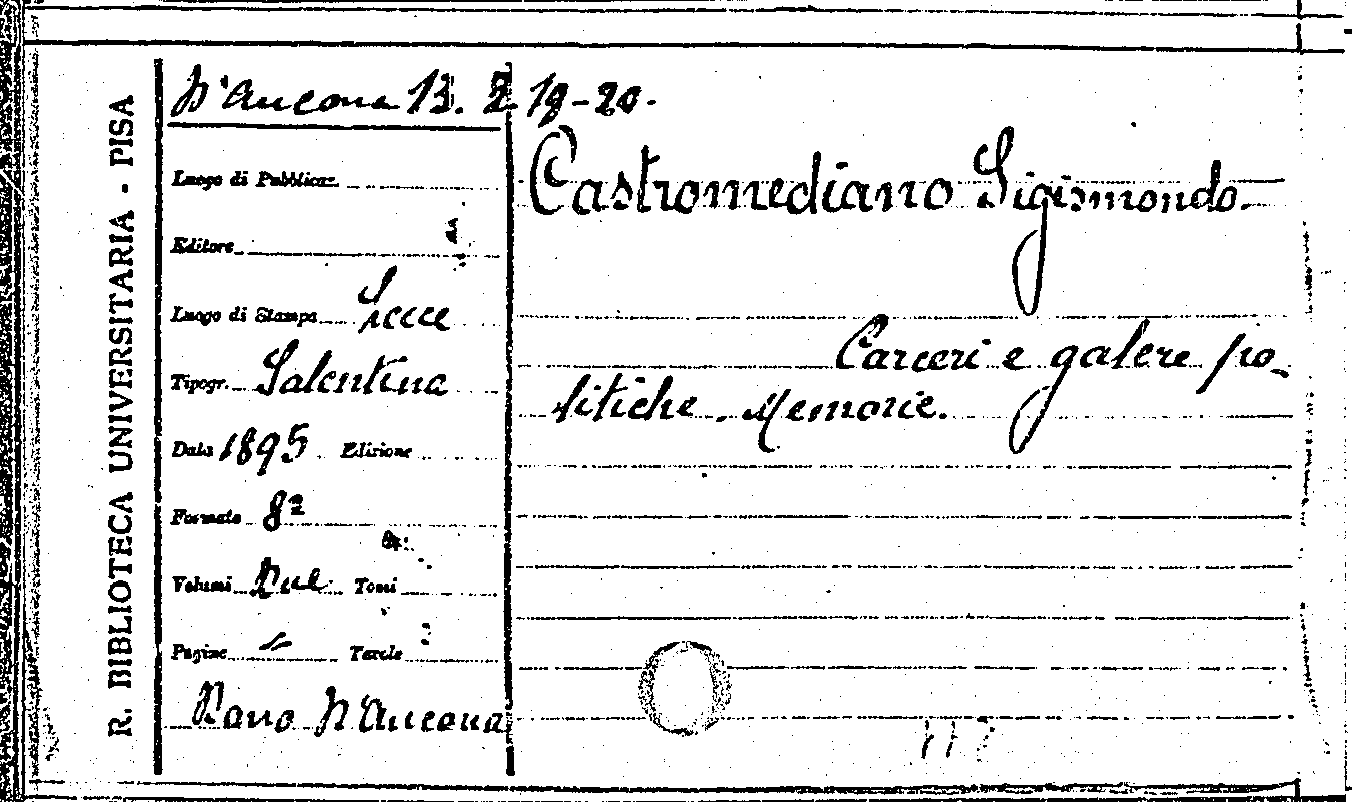 R. BIBLIOTECA UNIVERSITARIA - PISA
D'Ancona 13. 2 19-20.
Castromediano Sigismondo.
Luogo di Pubblicaz.
Editore
Luogo di Stampa Lecce
Carceri e galere po-
Tipogr. Salentina
litiche. Memorie.
Data 1895 Edizione
Formato 8º
Volumi Due Tomi
Pagine Tavole
Dono D'Ancona